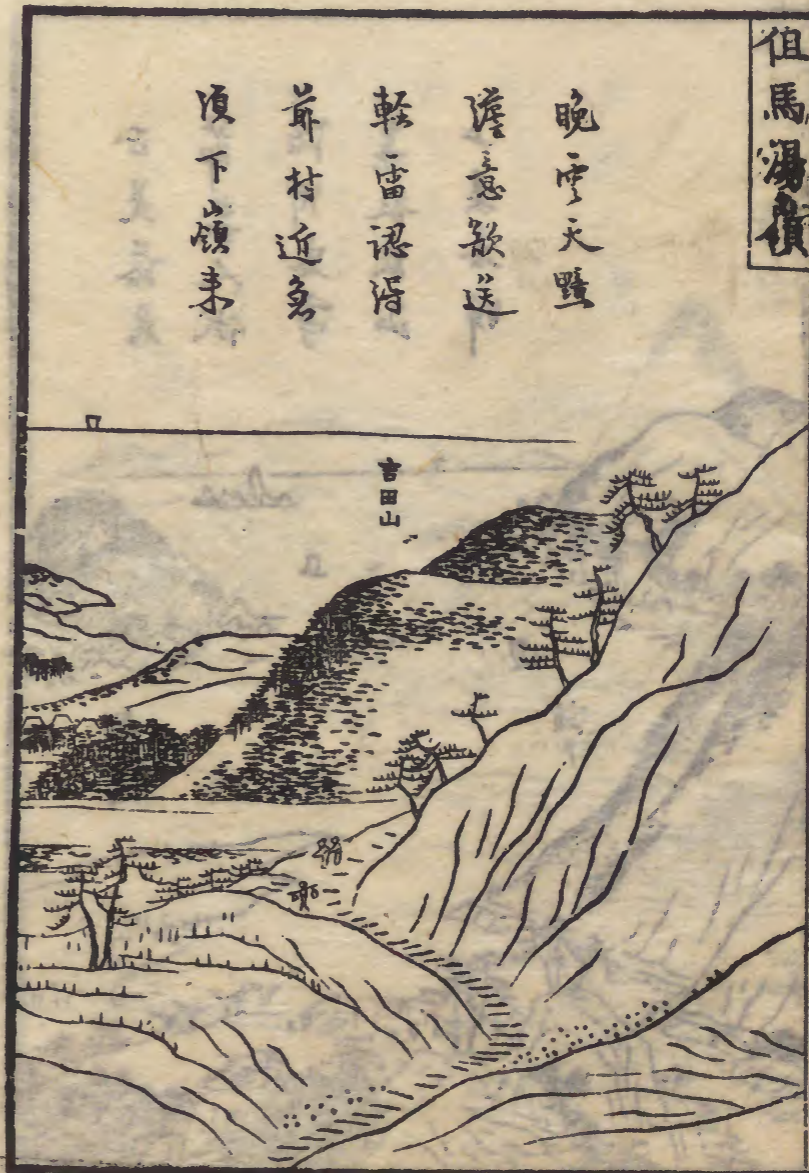 但馬湯嶺
晩雲天黯
澹意欲送
軽雷認得
前村近急
須下嶺来
吉田山